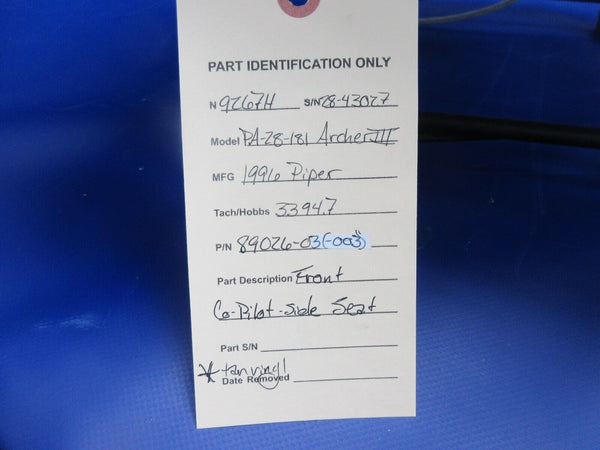 PART IDENTIFICATION ONLY
N 9267H S/N 28-43027
Model PA-28-181 Archer III
MFG 1996 Piper
Tach/Hobbs 3394.7
P/N 89026-03(-003")
Part Description Front
Co-Pilot-side Seat
Part S/N
* tan vinyl!
Date Removed